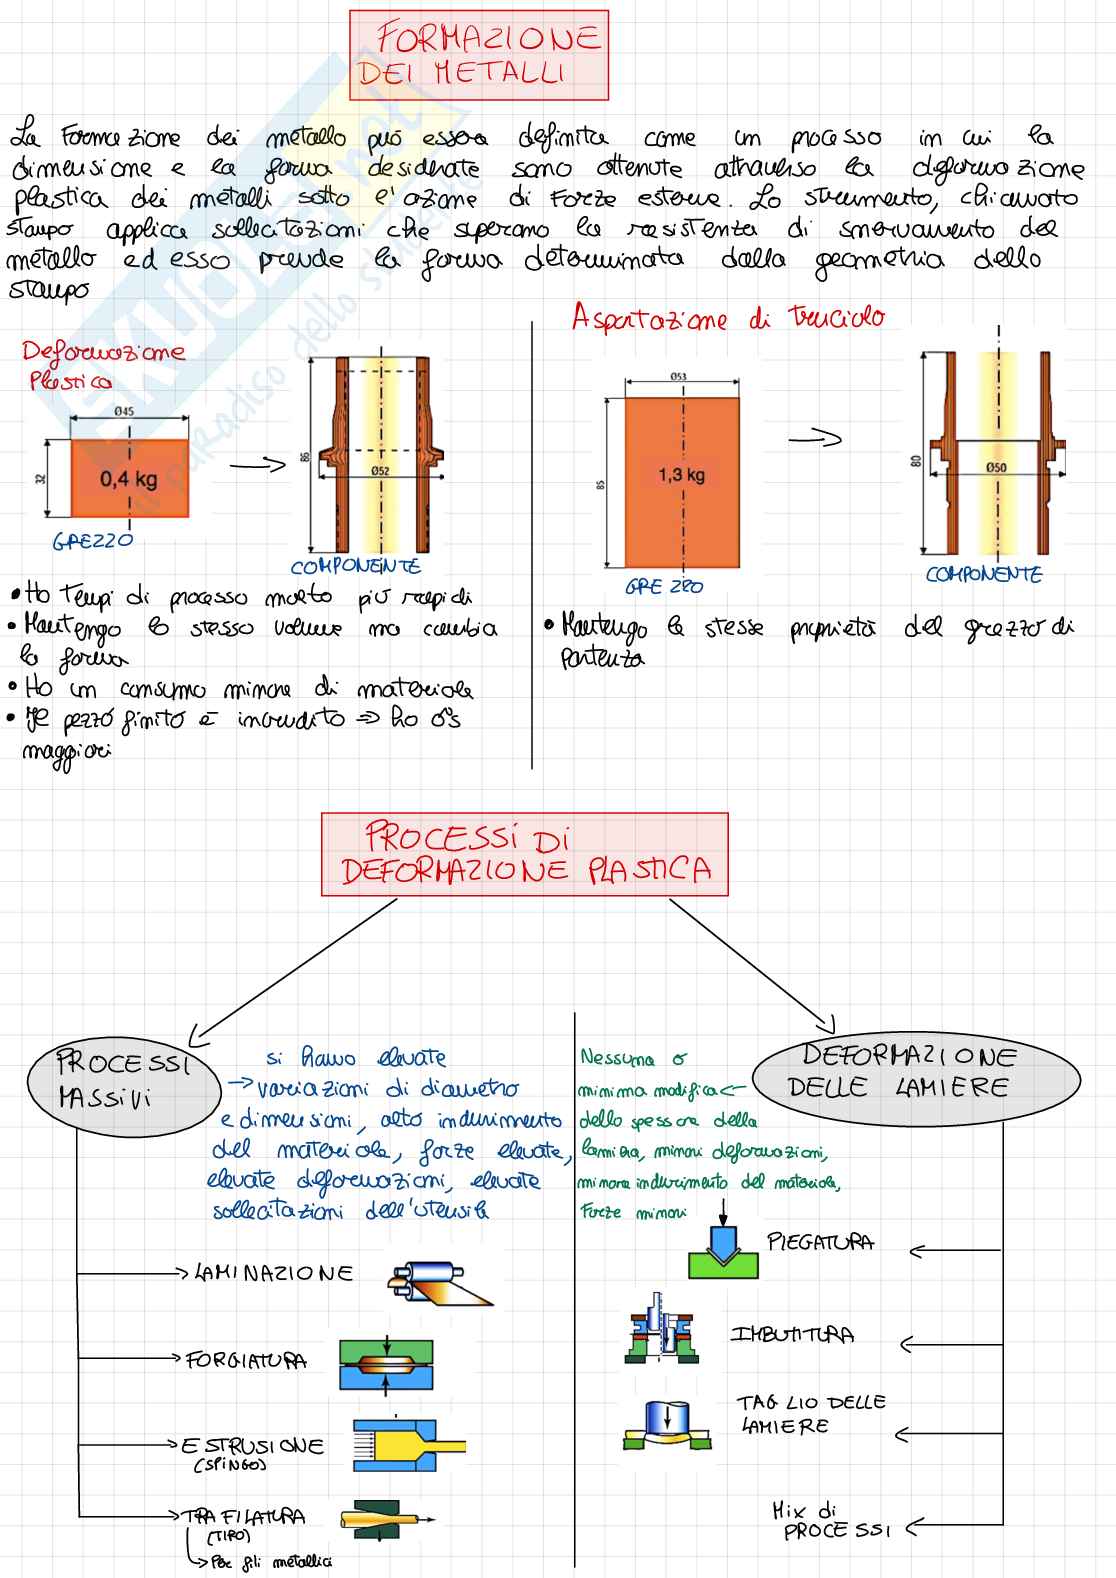 FORMAZIONE
DEI METALLI
La Formazione dei metallo può essere definita come un processo in cui la
dimensione e la forma desiderate sono ottenute attraverso la deformazione
plastica dei metalli sotto l'azione di Forze esterne. Lo strumento, chiamato
stampo applica sollecitazioni che superano la resistenza di snervamento del
metallo ed esso prende la forma determinata dalla geometria dello
stampo
Deformazione
Plastica
Ø45
32
0,4 kg
GREZZO
86
Ø52
COMPONENTE
• Ho Tempi di processo molto più rapidi
• Mantengo lo stesso volume ma cambia
la forma
• Ho un consumo minore di materiale
• Il pezzo finito è incrudito => ho σs
maggiori
Asportazione di truciolo
Ø53
85
1,3 kg
GREZZO
80
Ø50
COMPONENTE
• Mantengo le stesse proprietà del grezzo di
partenza
PROCESSI Di
DEFORMAZIONE PLASTICA
PROCESSI
MASSIVI
si hanno elevate
→ variazioni di diametro
e dimensioni, alto indurimento
del materiale, forze elevate,
elevate deformazioni, elevate
sollecitazioni dell'utensile
→ LAMINAZIONE
→ FORGIATURA
→ ESTRUSIONE
(SPINGO)
→ TRAFILATURA
(TIRO)
↳ Per fili metallici
DEFORMAZIONE
DELLE LAMIERE
Nessuna o
minima modifica ←
dello spessore della
lamiera, minori deformazioni,
minore indurimento del materiale,
Forze minori
PIEGATURA
IMBUTITURA
TAGLIO DELLE
LAMIERE
Mix di
PROCESSI
SKUOLA.net
il paradiso dello studente